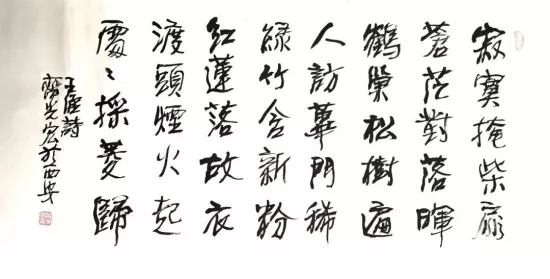 寂寞掩柴扉
蒼茫對落暉
鶴巢松樹遍
人訪蓽門稀
綠竹含新粉
紅蓮落故衣
渡頭煙火起
處〻採菱歸
王維詩
齊光宏於西安